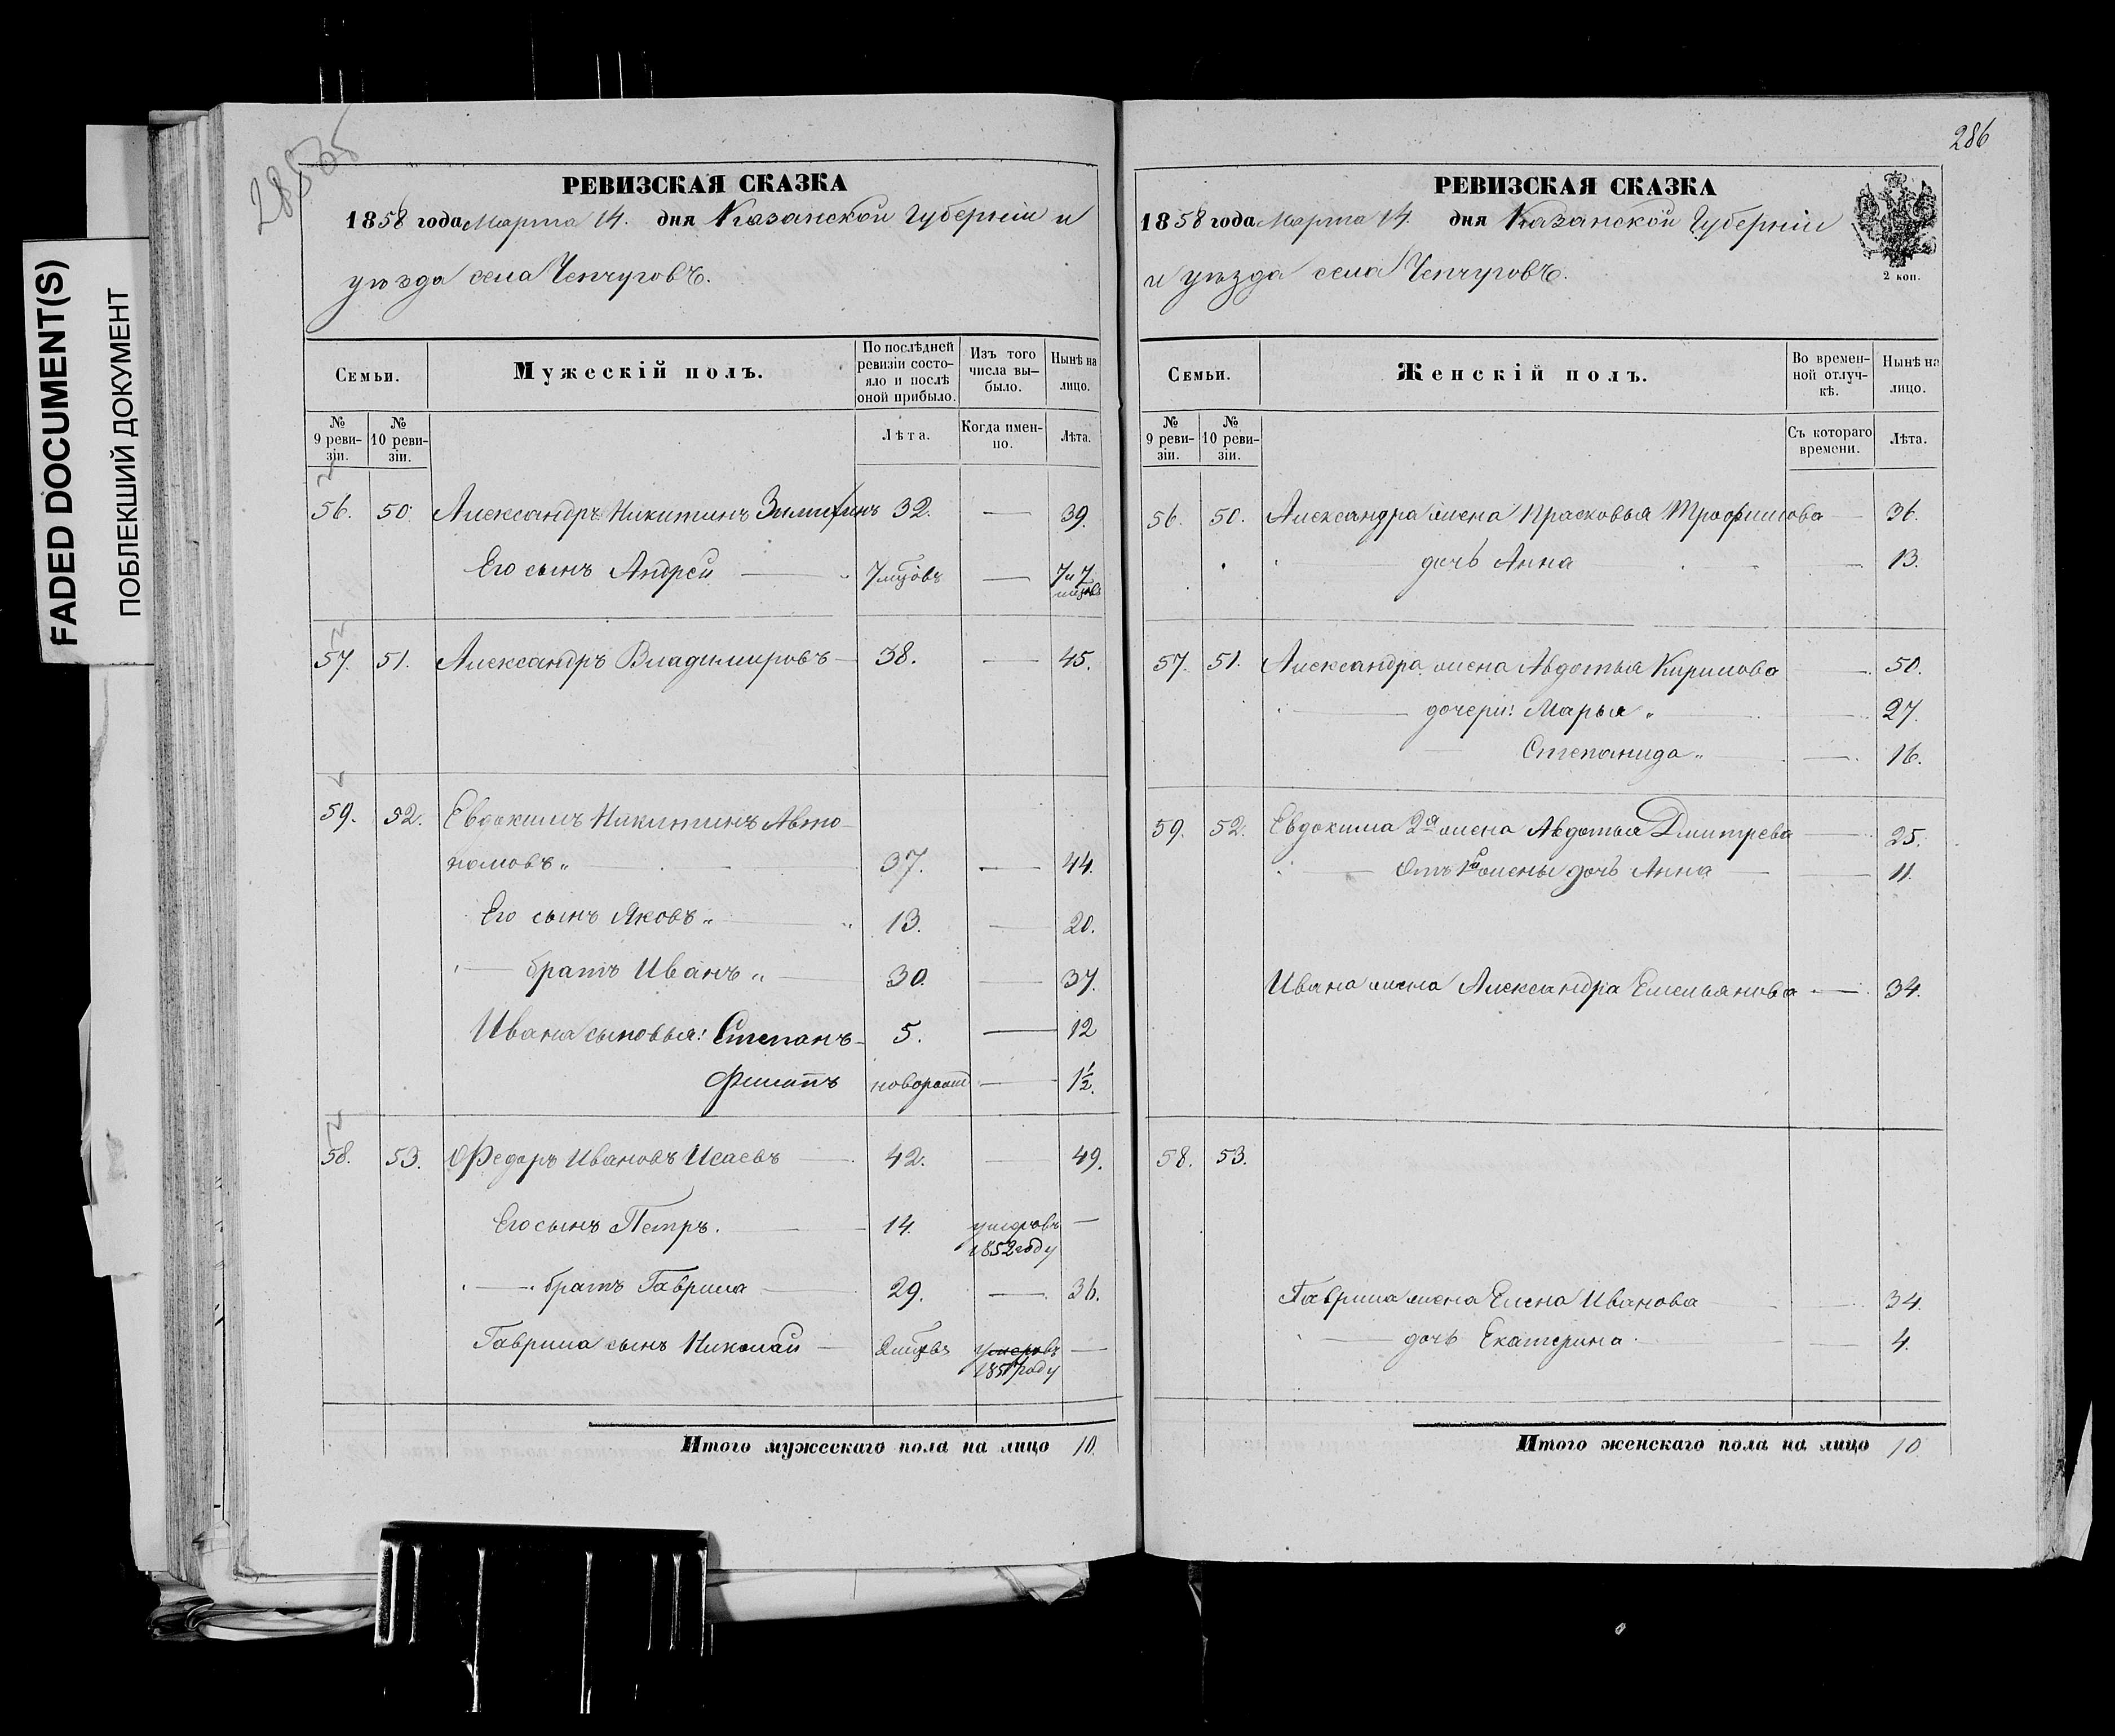 FADED DOCUMENT(S)
ПОБЛЕКШИЙ ДОКУМЕНТ
РЕВИЗСКАЯ СКАЗКА
1858 года Марта 14. дня Казанской Губерніи и
уѣзда села Чепчуговъ.
Семьи.
Мужескій полъ.
По послѣдней ревизіи состояло и послѣ оной прибыло.
Изъ того числа выбыло.
Нынѣ на лицо.
№ 9 ревизіи.
№ 10 ревизіи.
Лѣта.
Когда именно.
Лѣта.
56. 50. Александръ Никитинъ 32. — 39.
Его сынъ Андрей — 7 мцовъ — 7 и 7 мцовъ
57. 51. Александръ Владимировъ — 38. — 45.
59. 52. Евдокимъ Никитинъ Авто-
номовъ „ — 37. — 44.
Его сынъ Яковъ „ — 13. — 20.
„ — братъ Иванъ „ — 30. — 37.
Ивана сыновья: Степанъ — 5. — 12
Филипъ новорожд — 1½.
58. 53. Федоръ Ивановъ Исаевъ — 42. — 49.
Его сынъ Петръ. — 14. умеръ въ 1852 году —
„ — братъ Гаврила — 29. — 36.
Гаврила сынъ Николай — умеръ въ —
Итого мужескаго пола на лицо 10.
286
РЕВИЗСКАЯ СКАЗКА
1858 года Марта 14. дня Казанской Губерніи
и уѣзда села Чепчуговъ.
2 коп.
Семьи.
Женскій полъ.
Во временной отлучкѣ.
Нынѣ на лицо.
№ 9 ревизіи.
№ 10 ревизіи.
Съ котораго времени.
Лѣта.
56. 50. Александра жена Прасковья Трофимова — 36.
дочь Анна — 13.
57. 51. Александра жена Авдотья Кирилова — 50.
— дочери: Марья „ — 27.
Степанида „ — 16.
59. 52. Евдокима 2я жена Авдотья Дмитрева — 25.
— Отъ 1й жены дочь Анна — 11.
Ивана жена Александра Емельянова — 34.
58. 53.
Гаврила жена Елена Иванова — 34.
„ — дочь Екатерина. — 4.
Итого женскаго пола на лицо 10